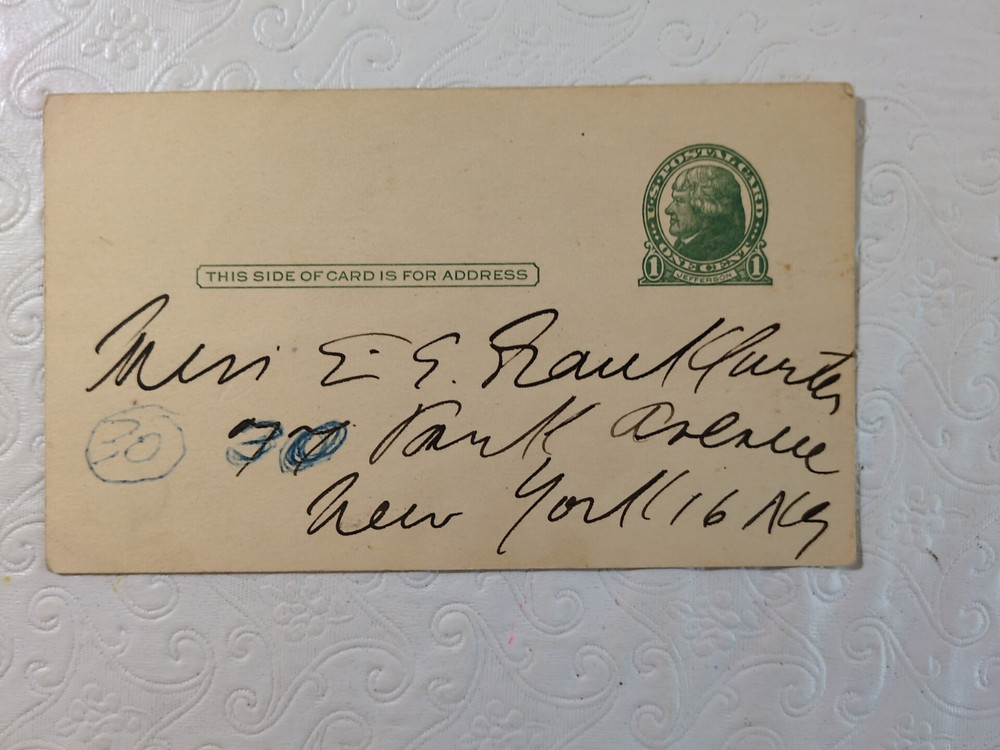 U.S. POSTAL CARD
ONE CENT
1 JEFFERSON 1
THIS SIDE OF CARD IS FOR ADDRESS
Miss E. G. Frankfurter
30 77 Park Avenue
New York 16 NY